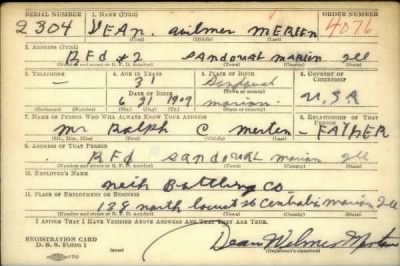 SERIAL NUMBER 1. NAME (Print) ORDER NUMBER
2304 DEAN. wilmer MERTEN 4076
(First) (Middle) (Last)
2. ADDRESS (Print)
RFd #2 Sandoval marion Ill
(Number and street or R. F. D. number) (Town) (County) (State)
3. TELEPHONE 4. AGE IN YEARS 5. PLACE OF BIRTH 6. COUNTRY OF CITIZENSHIP
31 Sandoval
DATE OF BIRTH (Town or county)
6 21 1909 marion U.S.A
(Mo.) (Day) (Yr.) (State or country)
7. NAME OF PERSON WHO WILL ALWAYS KNOW YOUR ADDRESS 8. RELATIONSHIP OF THAT PERSON
Mr Ralph C merten - FATHER
(Mr., Mrs., Miss) (First) (Middle) (Last)
9. ADDRESS OF THAT PERSON
RFd Sandoval marion Ill
(Number and street or R. F. D. number) (Town) (County) (State)
10. EMPLOYER'S NAME
Bottling Co
11. PLACE OF EMPLOYMENT OR BUSINESS
north locust St Centralia marion Ill
(Number and street or R. F. D. number) (Town) (County) (State)
I AFFIRM THAT I HAVE VERIFIED ABOVE ANSWERS AND THAT THEY ARE TRUE.
REGISTRATION CARD
D. S. S. Form 1
Dean Wilmer Merten
(Registrant's signature)